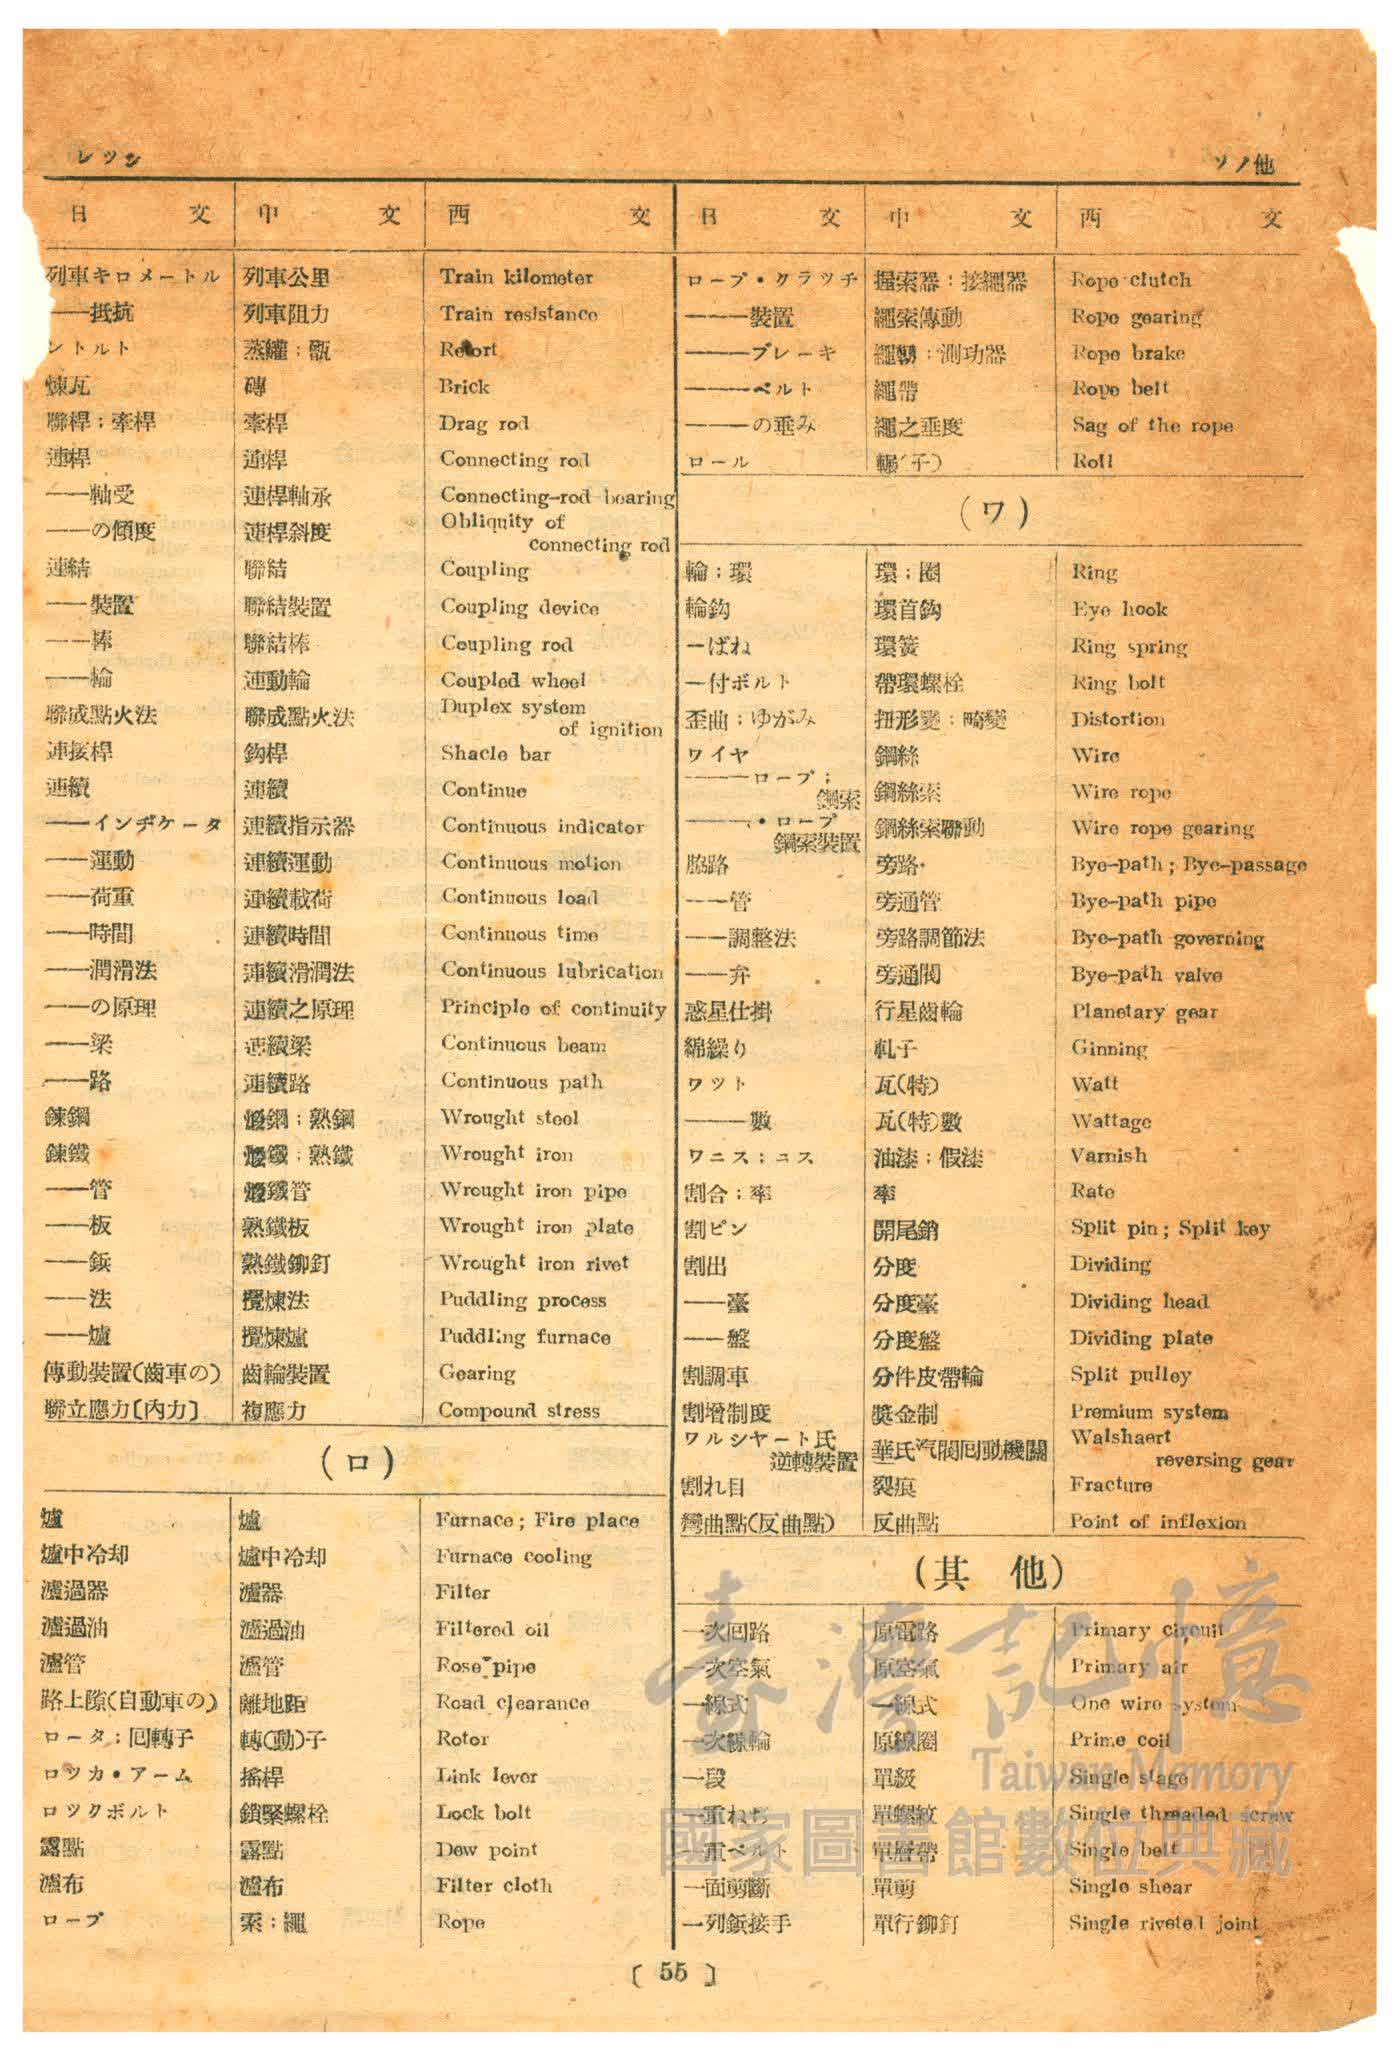 レツシ
ソノ他
日 文 中 文 西 文
列車キロメートル 列車公里 Train kilometer
——抵抗 列車阻力 Train resistance
ントルト 蒸罐；甑 Retort
煉瓦 磚 Brick
聯桿；牽桿 牽桿 Drag rod
連桿 連桿 Connecting rod
——軸受 連桿軸承 Connecting-rod bearing
——の傾度 連桿斜度 Obliquity of
connecting rod
連結 聯結 Coupling
——裝置 聯結裝置 Coupling device
——棒 聯結棒 Coupling rod
——輪 連動輪 Coupled wheel
聯成點火法 聯成點火法 Duplex system
of ignition
連接桿 鈎桿 Shacle bar
連續 連續 Continue
——インヂケータ 連續指示器 Continuous indicator
——運動 連續運動 Continuous motion
——荷重 連續載荷 Continuous load
——時間 連續時間 Continuous time
——潤滑法 連續滑潤法 Continuous lubrication
——の原理 連續之原理 Principle of continuity
——梁 連續梁 Continuous beam
——路 連續路 Continuous path
鍊鋼 鋼；熟鋼 Wrought steel
鍊鐵 鐵；熟鐵 Wrought iron
——管 鐵管 Wrought iron pipe
——板 熟鐵板 Wrought iron plate
——鋲 熟鐵鉚釘 Wrought iron rivet
——法 攪煉法 Puddling process
——爐 攪煉爐 Puddling furnace
傳動裝置(齒車の) 齒輪裝置 Gearing
聯立應力〔內力〕 複應力 Compound stress
(ロ)
爐 爐 Furnace; Fire place
爐中冷却 爐中冷却 Furnace cooling
瀘過器 瀘器 Filter
瀘過油 瀘過油 Filtered oil
瀘管 瀘管 Rose pipe
路上隙(自動車の) 離地距 Road clearance
ロータ；囘轉子 轉(動)子 Rotor
ロツカ・アーム 搖桿 Link lever
ロツクボルト 鎖緊螺栓 Lock bolt
露點 露點 Dew point
瀘布 瀘布 Filter cloth
ロープ 索；繩 Rope
日 文 中 文 西 文
ロープ・クラツチ 握索器；接繩器 Rope clutch
———裝置 繩索傳動 Rope gearing
———ブレーキ 繩軔；測功器 Rope brake
———ベルト 繩帶 Rope belt
———の垂み 繩之垂度 Sag of the rope
ロール 輾(子) Roll
(ワ)
輪；環 環；圈 Ring
輪鈎 環首鈎 Eye hook
—ばね 環簧 Ring spring
—付ボルト 帶環螺栓 Ring bolt
歪曲；ゆがみ 扭形變；畸變 Distortion
ワイヤ 鋼絲 Wire
———ロープ；
鋼索 鋼絲索 Wire rope
———・ロープ
鋼索裝置 鋼絲索聯動 Wire rope gearing
脇路 旁路 Bye-path; Bye-passage
——管 旁通管 Bye-path pipe
——調整法 旁路調節法 Bye-path governing
——弁 旁通閥 Bye-path valve
惑星仕掛 行星齒輪 Planetary gear
綿繰り 軋子 Ginning
ワツト 瓦(特) Watt
———數 瓦(特)數 Wattage
ワニス；ニス 油漆；假漆 Varnish
割合；率 率 Rate
割ピン 開尾銷 Split pin; Split key
割出 分度 Dividing
——臺 分度臺 Dividing head
——盤 分度盤 Dividing plate
割調車 分件皮帶輪 Split pulley
割增制度 獎金制 Premium system
ワルシヤート氏
逆轉裝置 華氏汽閥囘動機關 Walshaert
reversing gear
割れ目 裂痕 Fracture
彎曲點(反曲點) 反曲點 Point of inflexion
(其 他)
一次囘路 原電路 Primary circuit
一次空氣 原空氣 Primary air
一線式 一線式 One wire system
一次線輪 原線圈 Prime coil
一段 單級 Single stage
一重ねぢ 單螺紋 Single threaded screw
一重ベルト 單層帶 Single belt
一面剪斷 單剪 Single shear
一列鋲接手 單行鉚釘 Single riveted joint
〔 55 〕
臺灣記憶
Taiwan Memory
國家圖書館數位典藏